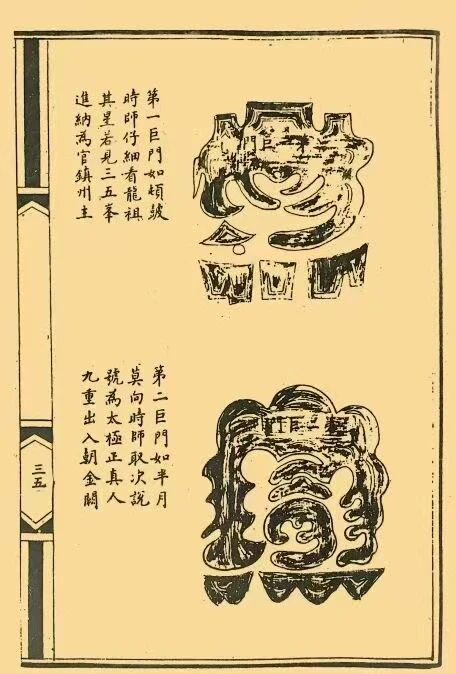 第一巨門如頓
時師仔細看龍祖
其星若見三五峯
進納為官鎮州主
第二巨門如半月
莫向時師取次說
號為太極正真人
九重出入朝金闕
巨門
第二巨門
三五